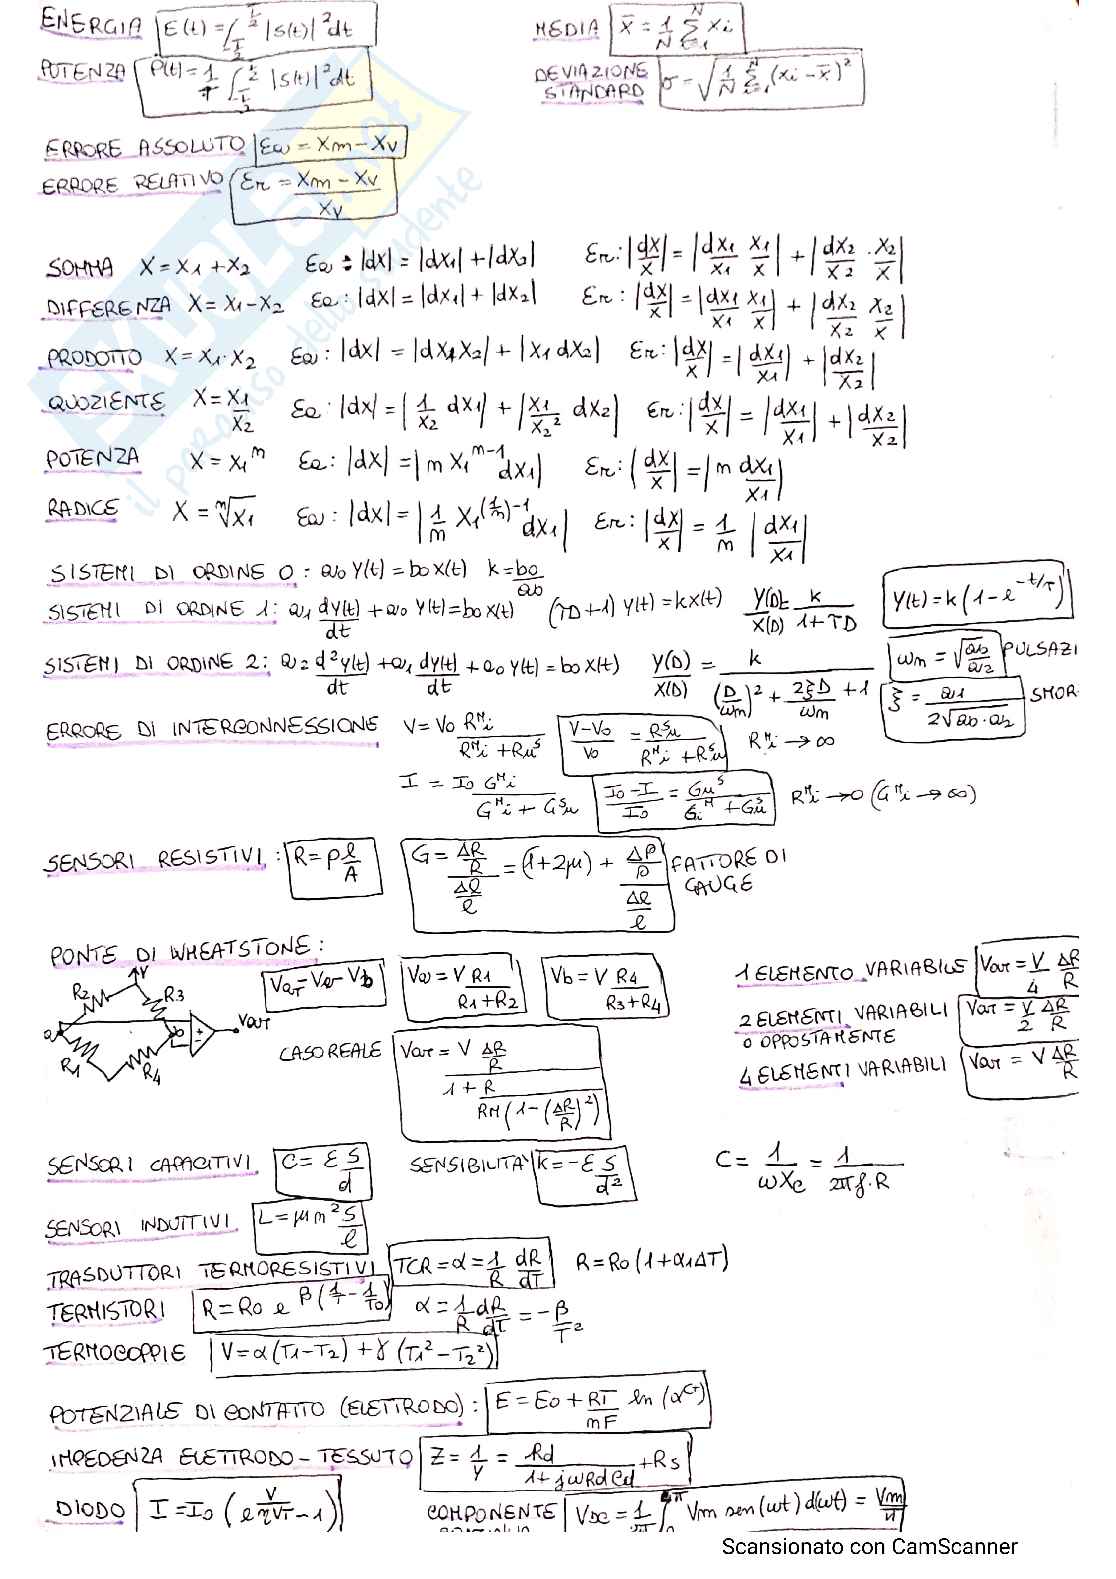 ENERGIA E(t) = ∫_{-T/2}^{T/2} |S(t)|² dt MEDIA x̄ = 1/N Σ_{i=1}^{N} xi
POTENZA P(t) = 1/T ∫_{-T/2}^{T/2} |S(t)|² dt DEVIAZIONE STANDARD σ = √(1/N Σ_{i=1}^{N} (xi - x̄)²)
ERRORE ASSOLUTO Ea = Xm - Xv
ERRORE RELATIVO Er = (Xm - Xv)/Xv
SOMMA X = X1 + X2 Ea : |dX| = |dX1| + |dX2| Er : |dX/X| = |dX1/X1 X1/X| + |dX2/X2 · X2/X|
DIFFERENZA X = X1 - X2 Ea : |dX| = |dX1| + |dX2| Er : |dX/X| = |dX1/X1 X1/X| + |dX2/X2 X2/X|
PRODOTTO X = X1 · X2 Ea : |dX| = |dX1 X2| + |X1 dX2| Er : |dX/X| = |dX1/X1| + |dX2/X2|
QUOZIENTE X = X1/X2 Ea : |dX| = |1/X2 dX1| + |X1/X2² dX2| Er : |dX/X| = |dX1/X1| + |dX2/X2|
POTENZA X = X1^m Ea : |dX| = |m X1^(m-1) dX1| Er : |dX/X| = |m dX1/X1|
RADICE X = ᵐ√X1 Ea : |dX| = |1/m X1^((1/m)-1) dX1| Er : |dX/X| = 1/m |dX1/X1|
SISTEMI DI ORDINE 0 : a0 Y(t) = b0 X(t) k = b0/a0
SISTEMI DI ORDINE 1 : a1 dY(t)/dt + a0 Y(t) = b0 X(t) (τD+1) Y(t) = kX(t) Y(D)/X(D) = k/(1+τD) Y(t) = k(1 - e^(-t/τ))
SISTEMI DI ORDINE 2 : a2 d²Y(t)/dt + a1 dY(t)/dt + a0 Y(t) = b0 X(t) Y(D)/X(D) = k/((D/ωm)² + 2ξD/ωm + 1) ωm = √(a0/a2) PULSAZI
ξ = a1/(2√(a0·a2)) SMOR
ERRORE DI INTERCONNESSIONE V = V0 R^M i/(R^M i + Ru^S) (V-V0)/V0 = R^S u/(R^M i + R^S u) R^M i → ∞
I = I0 G^M i/(G^M i + G^S u) (I0 - I)/I0 = Gu^S/(Gi^M + Gu^S) R^M i → 0 (G^M i → ∞)
SENSORI RESISTIVI : R = ρ l/A G = (ΔR/R)/(Δl/l) = (1+2μ) + (Δρ/ρ)/(Δl/l) FATTORE DI GAUGE
PONTE DI WHEATSTONE :
V R2 R3 a b R1 R4 + - VOUT
Vout = Va - Vb Va = V R1/(R1+R2) Vb = V R4/(R3+R4) 1 ELEMENTO VARIABILE Vout = V/4 ΔR/R
2 ELEMENTI VARIABILI O OPPOSTAMENTE Vout = V/2 ΔR/R
CASO REALE Vout = V (ΔR/R)/(1 + R/(RM(1-(ΔR/R)²))) 4 ELEMENTI VARIABILI Vout = V ΔR/R
SENSORI CAPACITIVI C = ε S/d SENSIBILITA' k = -ε S/d² C = 1/(ωXc) = 1/(2πf·R)
SENSORI INDUTTIVI L = μm² S/l
TRASDUTTORI TERMORESISTIVI TCR = α = 1/R dR/dT R = R0 (1 + α1ΔT)
TERMISTORI R = R0 e^(β(1/T - 1/T0)) α = 1/R dR/dT = -β/T²
TERMOCOPPIE V = α(T1-T2) + γ(T1²-T2²)
POTENZIALE DI CONTATTO (ELETTRODO) : E = E0 + RT/mF ln (α^C+)
IMPEDENZA ELETTRODO - TESSUTO Z = 1/Y = Rd/(1+jωRdCd) + Rs
DIODO I = I0 (e^(V/ηVT) - 1) COMPONENTE VDC = 1/2π ∫_0^π Vm sen(ωt) d(ωt) = Vm/π
SKUOLA.net
il paradiso dello studente
Scansionato con CamScanner